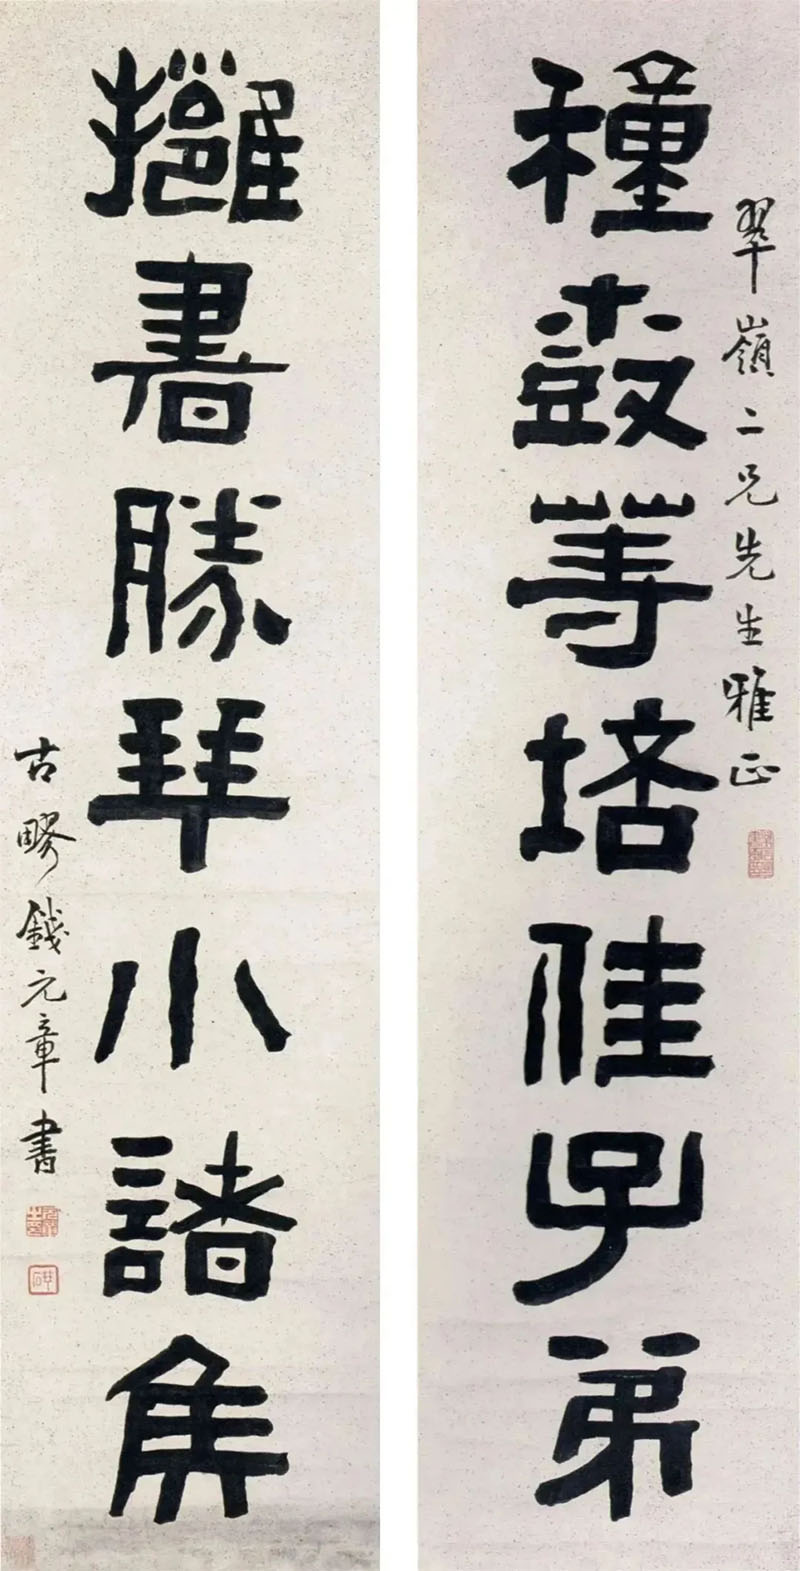 翠嶺二兄先生雅正
種樹等培佳子弟
擁書勝拜小諸侯
古疁錢元章書